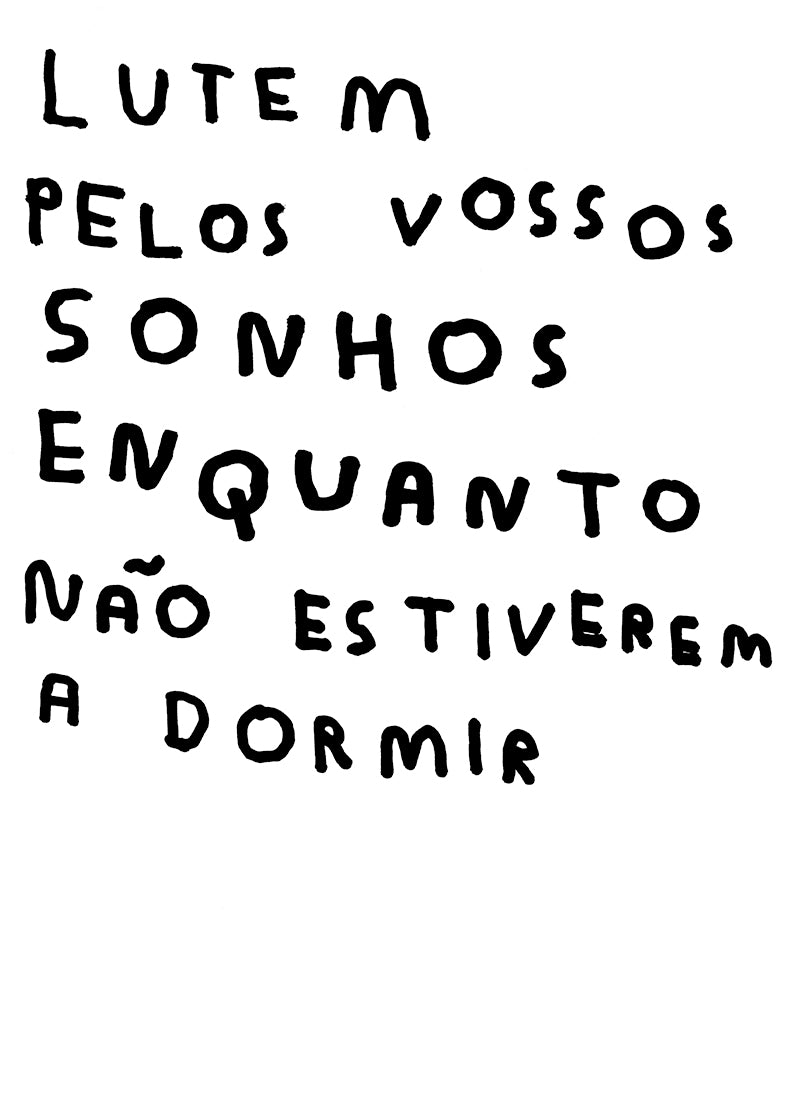 LUTEM
PELOS VOSSOS
SONHOS
ENQUANTO
NÃO ESTIVEREM
A DORMIR